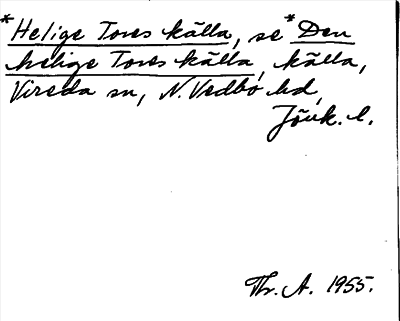 *Helige Tores källa, se *Den
helige Tores källa, källa,
Vireda sn, N. Vedbo hd,
Jönk. l.
Thr. A. 1955.